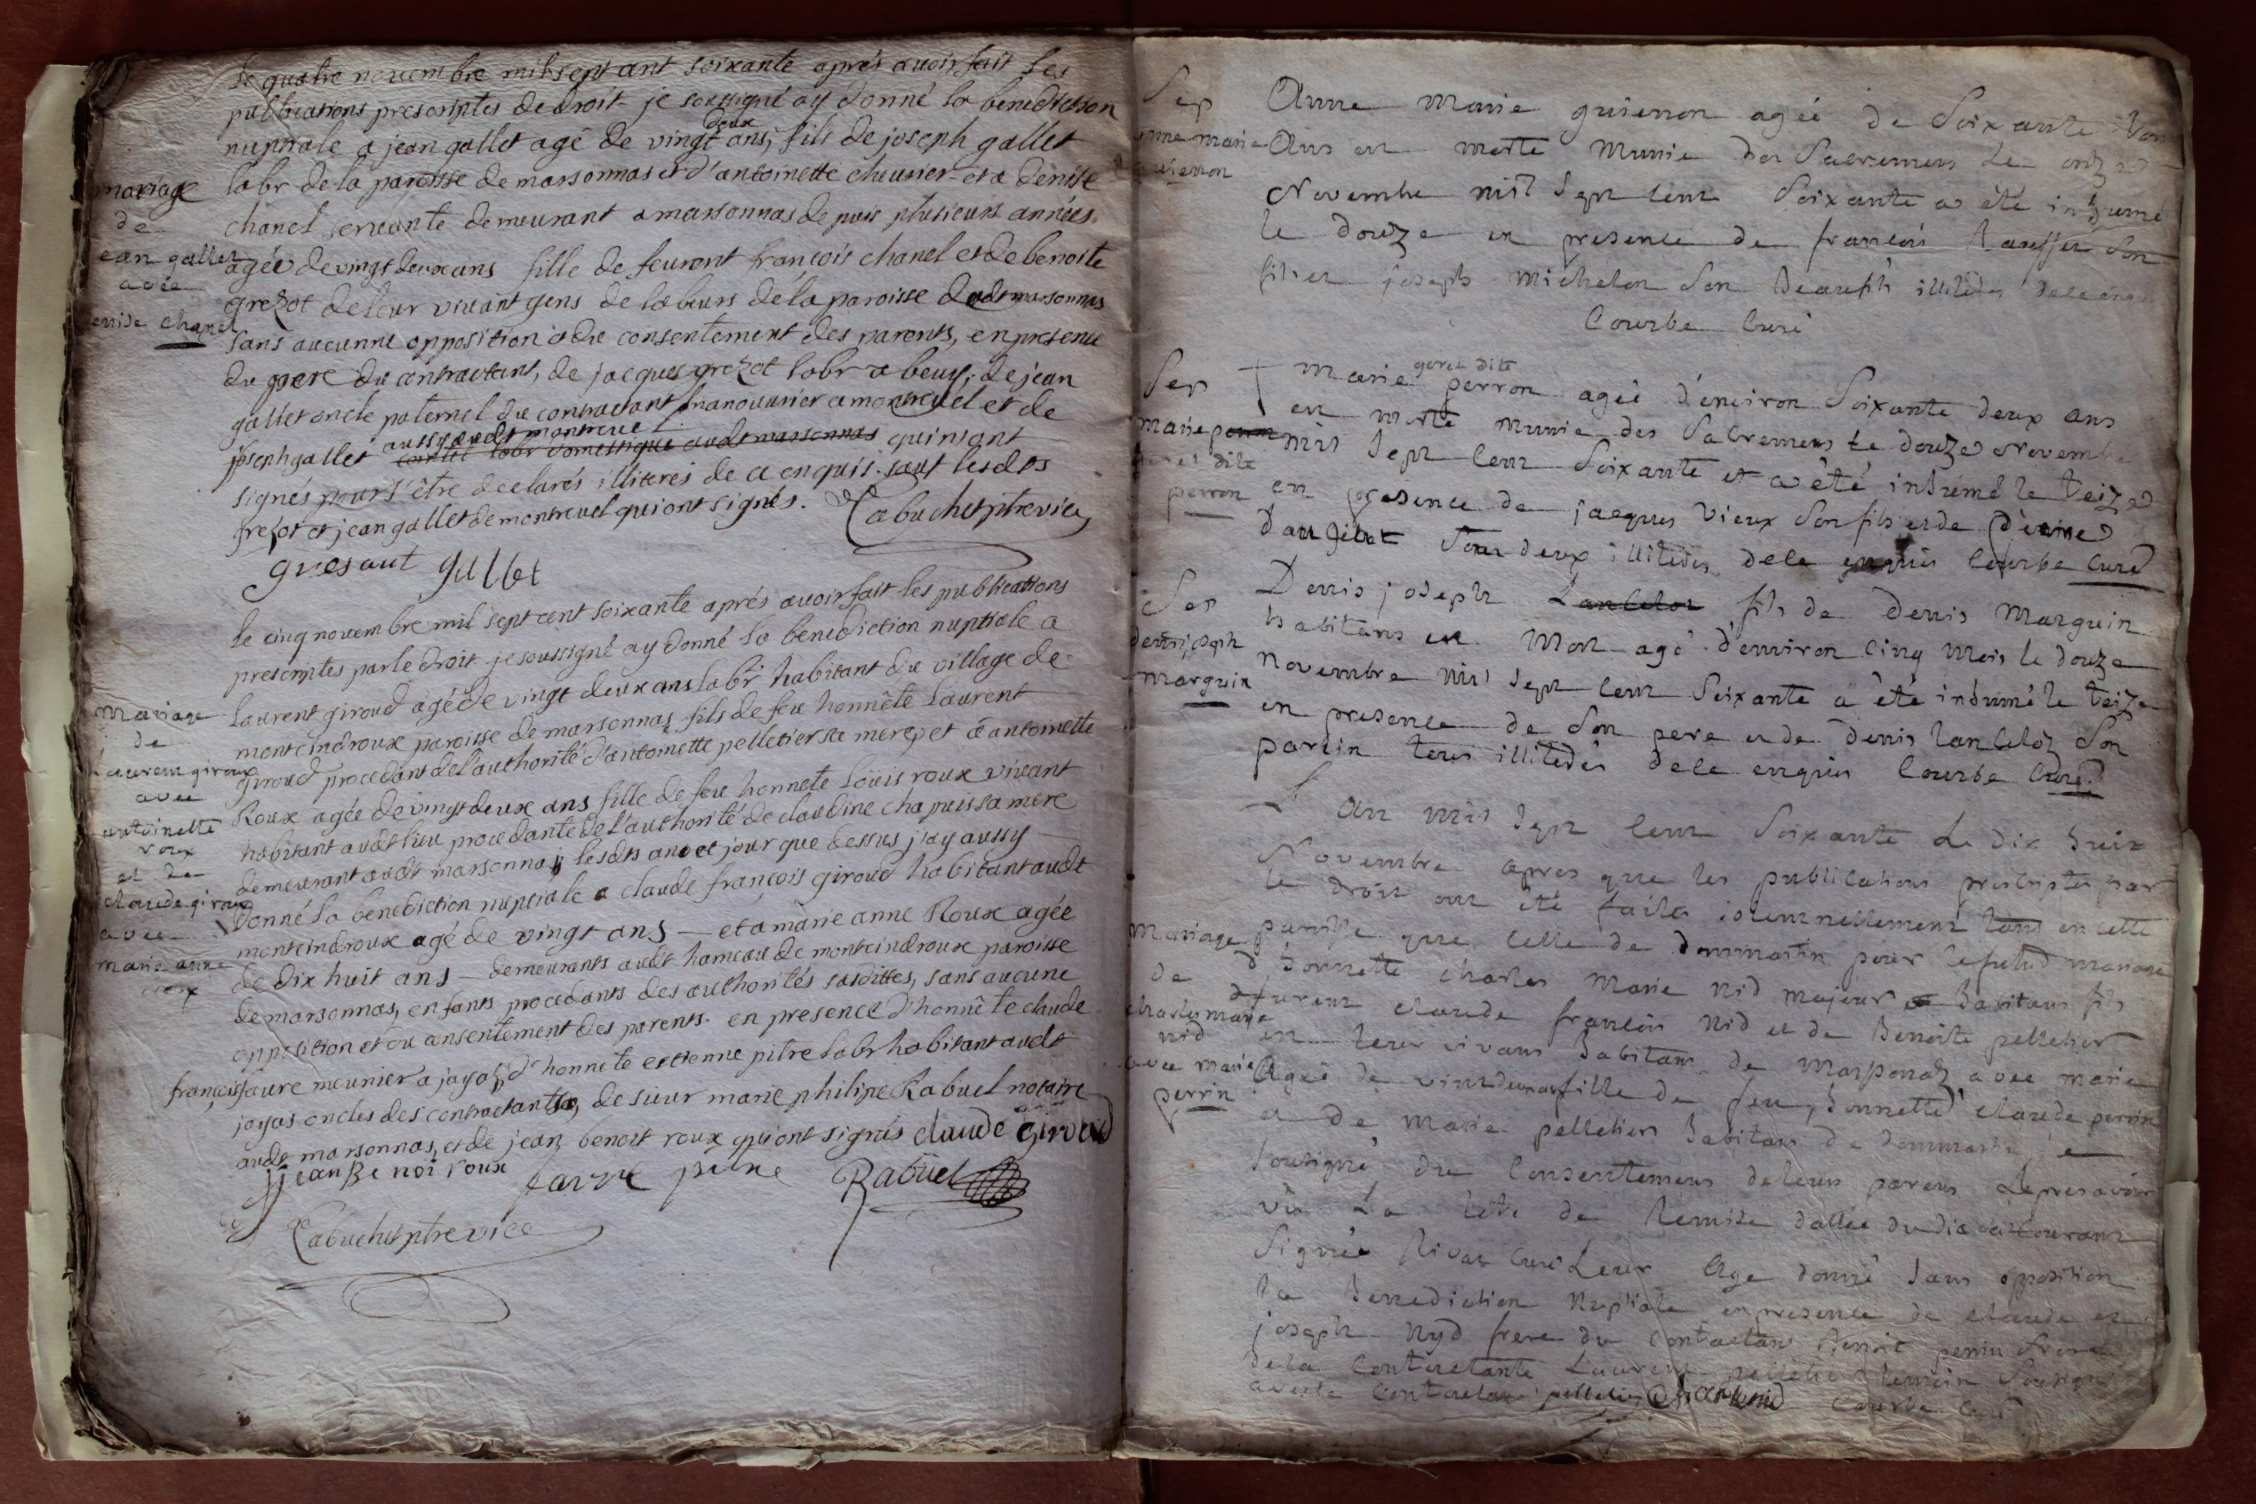 le quatre novembre mil sept cent soixante aprés avoir fait les
publications prescriptes de droit je soussigné ay donné la benediction
nuptiale a jean gallet agé de vingt deux ans, fils de joseph gallet
labr de la paroisse de marsonnas et d'antoinette chevrier et a denise
chanel servante demeurant a marsonnas depuis plusieurs années
agée de vingt deux ans fille de feu françois chanel et de benoite
grezot de leur vivant gens de labeurs de la paroisse dudt marsonnas
sans aucunne opposition et du consentement des parents, en presence
du pere du contractant, de jacques grezot labr a beuy, de jean
gallet oncle paternel du contractant manouvrier a montrevel et de
joseph gallet aussy dudt montrevel labr domestique audt marsonnas qui n'ont
signés pour s'être declarés illiterés de ce enquis sauf lesdts
grezot et jean gallet de montrevel qui ont signés. Labuchet ptre vice
gresaut gallet
mariage
de
jean gallet
avec
denise chanel
le cinq novembre mil sept cent soixante aprés avoir fait les publications
prescriptes par le droit je soussigné ay donné la benediction nuptiale a
laurent giroud agé de vingt deux ans labr habitant du village de
montcindroux paroisse de marsonnas fils de feu honnête Laurent
giroud procedant de l'authorité d'antoinette pelletier sa mere, et a antoinette
Roux agée de vingt deux ans fille de feu honnete Louis roux vivant
habitant audt lieu procedante de l'authorité de claudine chapuis sa mere
demeurant audt marsonnas, lesdts an et jour que dessus j'ay aussy
donné la benediction nuptiale a claude françois giroud habitant audt
montcindroux agé de vingt ans — et a marie anne Roux agée
de dix huit ans — demeurants audt hameau de montcindroux paroisse
de marsonnas, enfants procedants des authorités susdittes, sans aucune
opposition et du consentement des parents. en presence d'honnête claude
françois favre meunier a jayat, d'honnete estienne pitre labr habitant audt
jayas oncles des contractants, de sieur marie philipe Rabuel notaire
audt marsonnas, et de jean benoit roux qui ont signés claude Giroud
jean Be noi roux favre pitre Rabuel
Labuchet ptre vice
mariage
de
Laurent giroux
avec
antoinette
roux
et de
claude giroux
avec
marie anne
roux
Sep
anne marie
guienon
Anne Marie guienon agée de Soixante
Ans est morte Munie des Sacremens Le onze
Novembre mil Sept Cent Soixante a été inhumé
le douze en presence de francois son
fils et joseph Michelon Son Beaufils illiterés de ce enquis
Courbe Curé
Sep
marie perron
goret dite
perron
Marie goret dite perron agée d'environ Soixante deux ans
est morte munie des Sacremens Le douze Novembre
mil Sept Cent Soixante et a été inhumé le treize
en presence de jacques Vieux Son fils et de
tous deux illiterés de ce enquis Courbe Curé
Sep
denis joseph
marguin
Denis joseph Lancelot fils de Denis Marguin
habitans est Mort agé d'environ Cinq Mois le douze
Novembre mil Sept Cent Soixante a été inhumé le treize
en presence de Son pere et de Denis lanceloz Son
parein tous illiterés de ce enquis Courbe Curé
L'an mil Sept Cent Soixante Le dix huit
Novembre apres que les publications prescriptes par
le droit ont été faites solemnellement tant en cette
paroisse que celle de dommartin pour le futur mariage
d'honnette Charles Marie Nid Majeur habitans fils
furent claude francois Nid et de Benoite pelletier
en leur vivans habitans de Marsonaz avec marie perrin
Agée de vint deux ans fille de feu honnette claude perrin
et de Marie pelletier habitans de dommartin
Soussigné du Consentement de leurs parens Et apres avoir
vu La lettre de remise dattée du dix Courant
Signée Rivat Curé Leur Ay donné Sans opposition
La Benediction Nuptiale en presence de claude et
joseph Nyd frere du Contractans Benoit perrin frere
de la Contractante Laurent pelletier temoin Soussigné
avec le Contractant pelletier Courbe Curé
mariage
de
charles marie
nid
avec marie
perrin